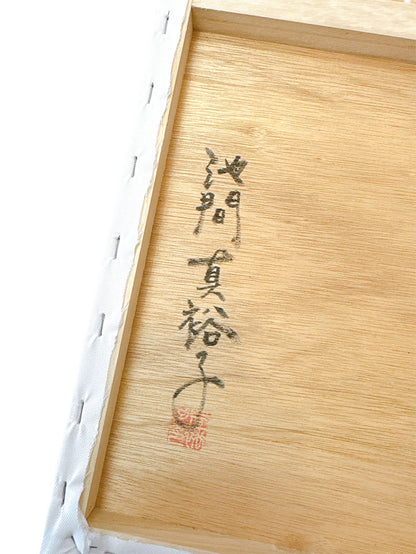 池間 真裕子